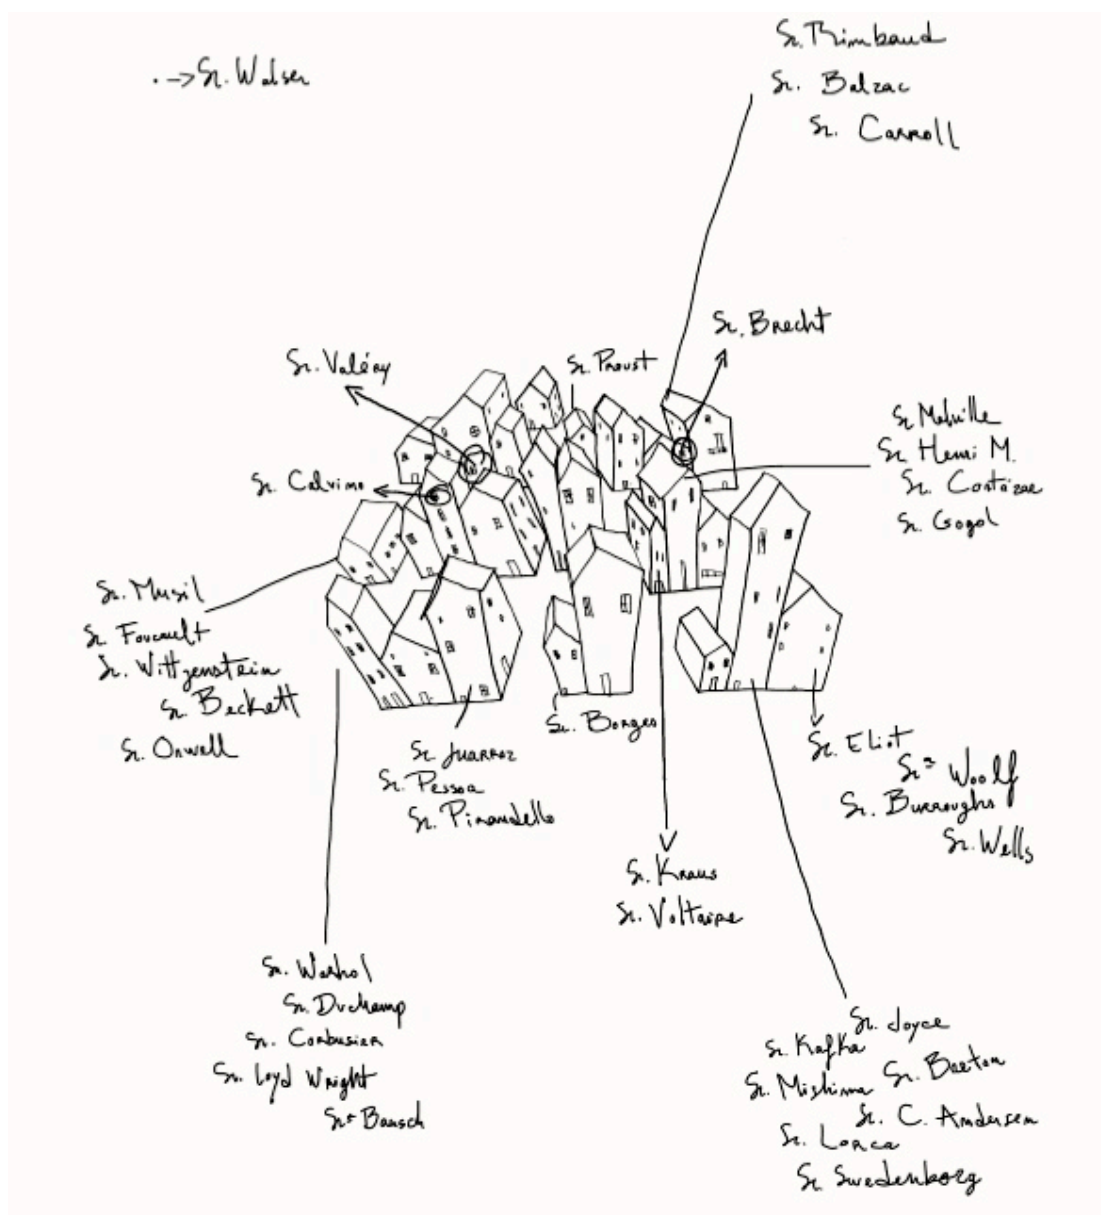 Sr. Rimbaud
Sr. Balzac
Sr. Carroll
Sr. Walser
Sr. Brecht
Sr. Valéry
Sr. Proust
Sr. Calvino
Sr Melville
Sr Henri M.
Sr. Cortázar
Sr. Gogol
Sr. Musil
Sr. Foucault
Sr. Wittgenstein
Sr. Beckett
Sr. Orwell
Sr. Juarroz
Sr. Pessoa
Sr. Pirandello
Sr. Borges
Sr. Eliot
Srª Woolf
Sr. Burroughs
Sr. Wells
Sr. Kraus
Sr. Voltaire
Sr. Warhol
Sr. Duchamp
Sr. Corbusier
Sr. Loyd Wright
Srª Bausch
Sr. Joyce
Sr. Kafka
Sr. Breton
Sr. Mishima
Sr. C. Andersen
Sr. Lorca
Sr Swedenborg